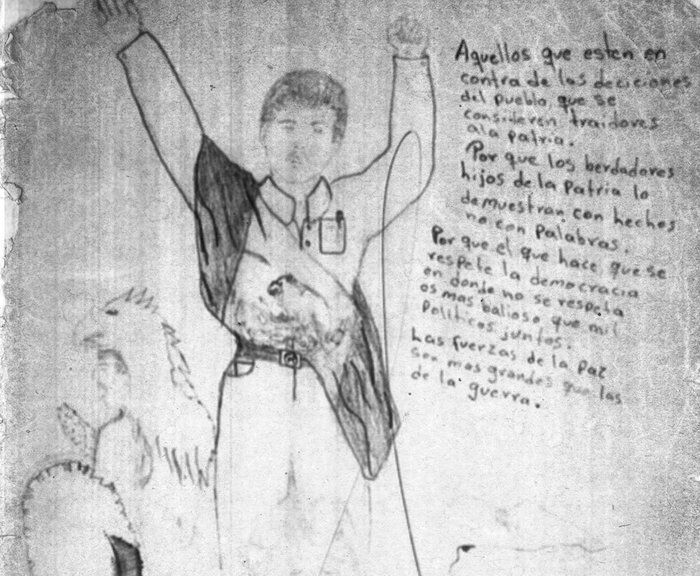 Aquellos que esten en
contra de las deciciones
del pueblo, que se
consideren traidores
a la patria.
Por que los berdadores
hijos de la Patria lo
demuestran con hechos
no con Palabras.
Por que el que hace que se
respete la democracia
en donde no se respeta
es mas balioso que mil
Politicos juntos.
Las fuerzas de la Paz
son mas grandes que las
de la guerra.